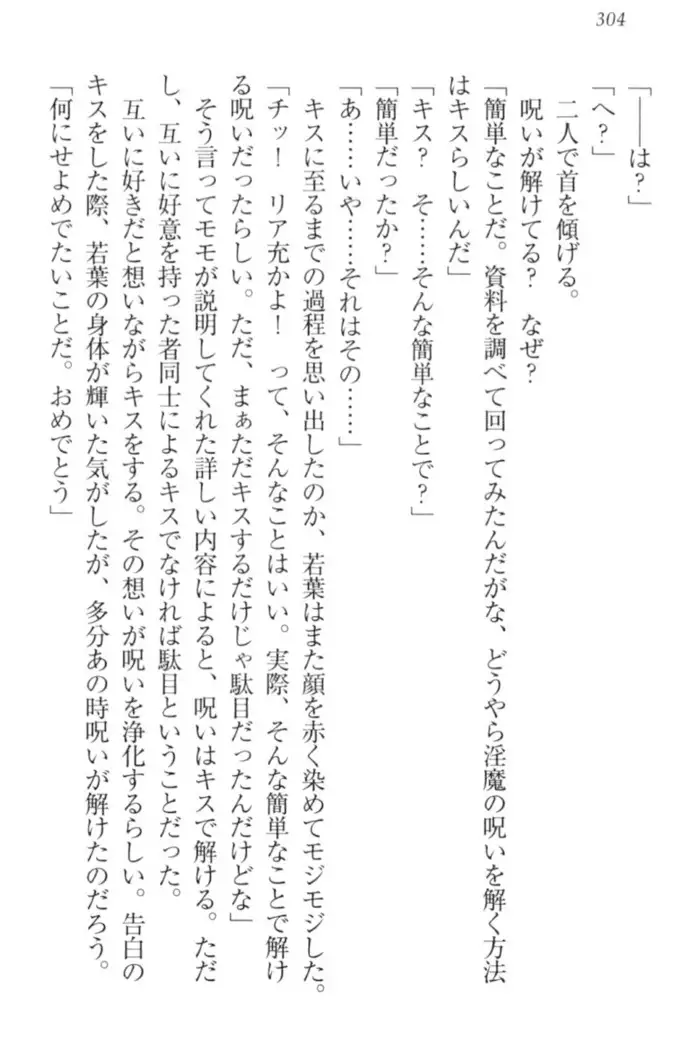 304
「――は？」
「へ？」
　二人で首を傾げる。
　呪いが解けてる？　なぜ？
「簡単なことだ。資料を調べて回ってみたんだがな、どうやら淫魔の呪いを解く方法
はキスらしいんだ」
「キス？　そ……そんな簡単なことで？」
「簡単だったか？」
「あ……いや……それはその……」
　キスに至るまでの過程を思い出したのか、若葉はまた顔を赤く染めてモジモジした。
「チッ！　リア充かよ！　って、そんなことはいい。実際、そんな簡単なことで解け
る呪いだったらしい。ただ、まぁただキスするだけじゃ駄目だったんだけどな」
　そう言ってモモが説明してくれた詳しい内容によると、呪いはキスで解ける。ただ
し、互いに好意を持った者同士によるキスでなければ駄目ということだった。
　互いに好きだと想いながらキスをする。その想いが呪いを浄化するらしい。告白の
キスをした際、若葉の身体が輝いた気がしたが、多分あの時呪いが解けたのだろう。
「何にせよめでたいことだ。おめでとう」